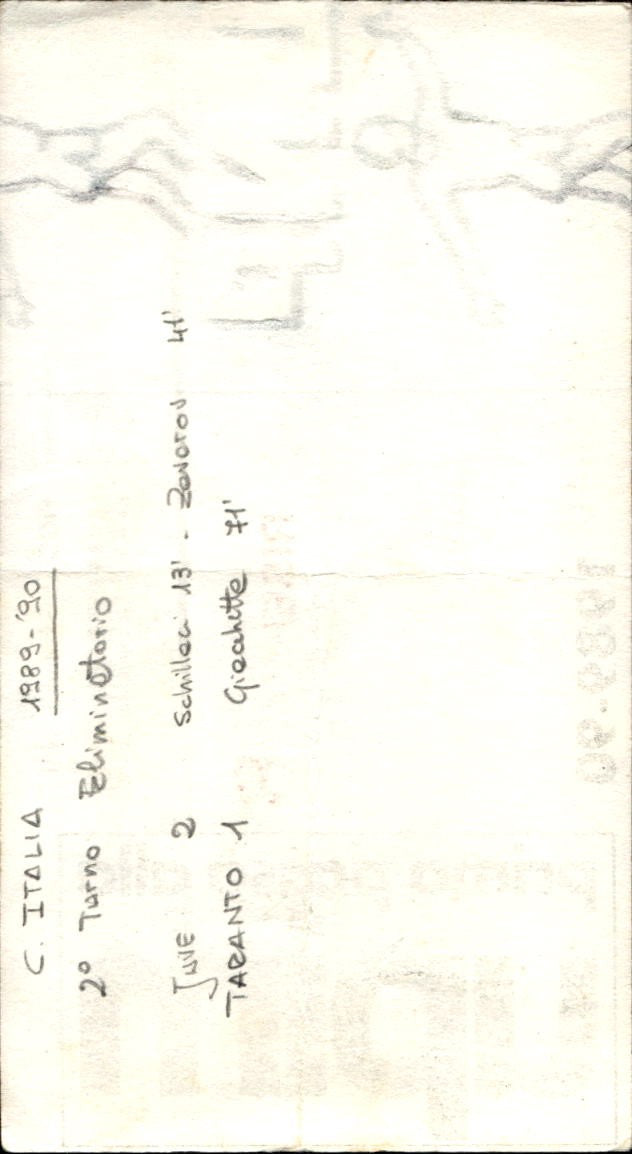 C. ITALIA 1989-'90
2° Turno Eliminatorio
JUVE 2 Schillaci 13' - Zavarov 41'
TARANTO 1 Giacchetta 71'